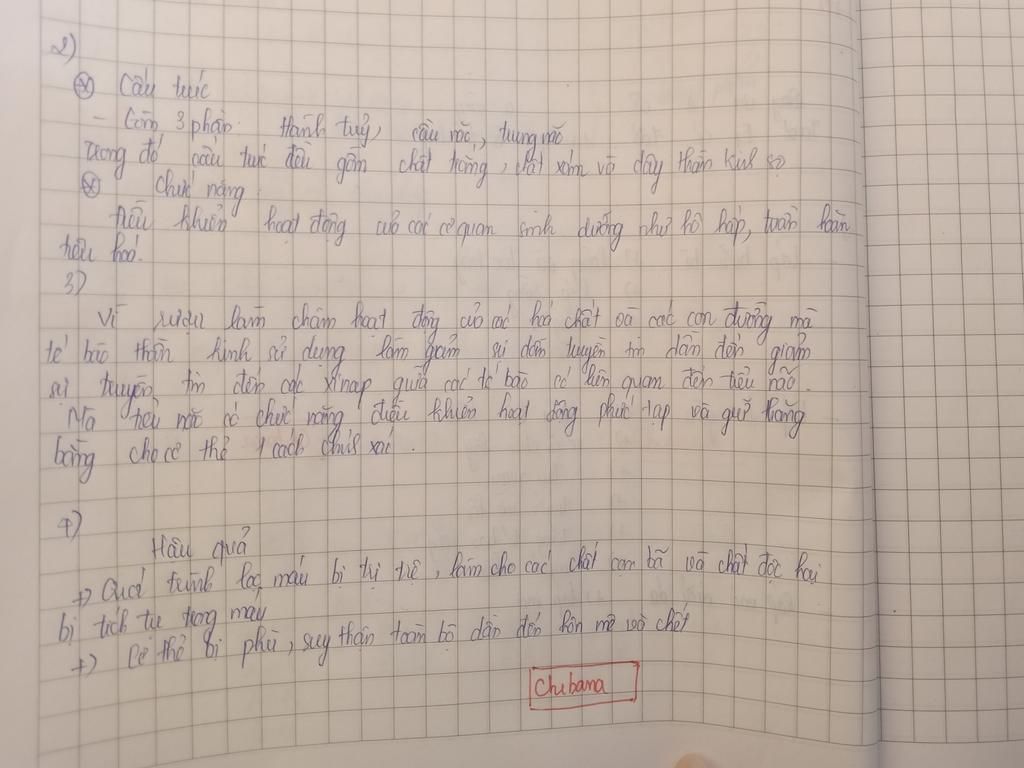 2)
⊗ Cấu trúc
- Gồm 3 phần: Hành tuỷ, cầu não, trung não
Trong đó cấu trúc đều gồm chất trắng, chất xám và dây thần kinh số
⊗ Chức năng
Điều khiển hoạt động của các cơ quan sinh dưỡng như hô hấp, tuần hoàn
tiêu hoá.
3)
Vì rượu làm chậm hoạt động của các hoá chất và các con đường mà
tế bào thần kinh sử dụng làm giảm sự dẫn truyền tin dẫn đến giảm
sự truyền tin đến các xinap giữa các tế bào có liên quan đến tiểu não.
Mà tiểu não có chức năng điều khiển hoạt động phức tạp và giữ thăng
bằng cho cơ thể 1 cách chính xác.
4)
Hậu quả
+) Quá trình lọc máu bị trì trệ, làm cho các chất cạn bã và chất độc hại
bị tích tụ trong máu
+) Cơ thể bị phù, suy thận toàn bộ dẫn đến hôn mê và chết
Chibana